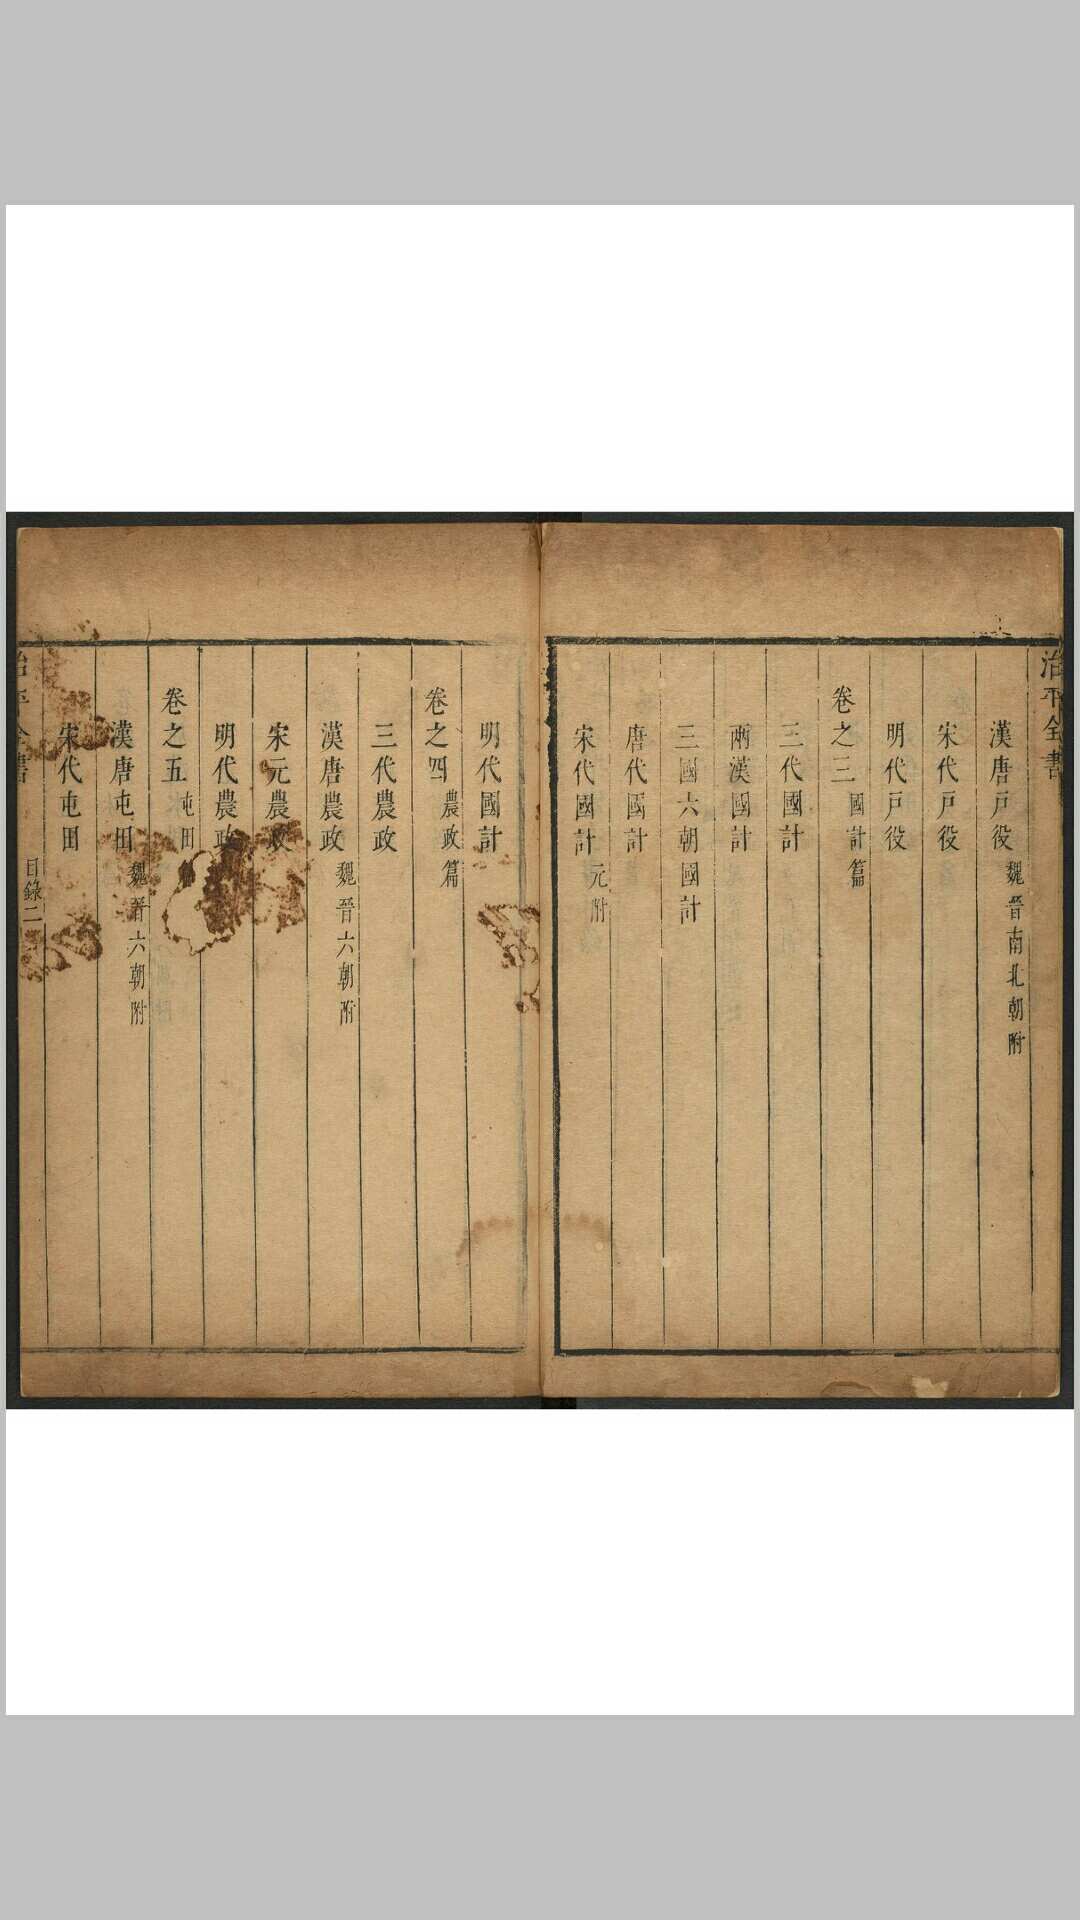 治平全書
漢唐戸役 魏晉南北朝附
宋代戸役
明代戸役
卷之三 國計篇
三代國計
兩漢國計
三國六朝國計
唐代國計
宋代國計 元附
明代國計
卷之四 農政篇
三代農政
漢唐農政 魏晉六朝附
宋元農政
明代農政
卷之五 屯田
漢唐屯田 魏晉六朝附
宋代屯田
治平全書 目錄二